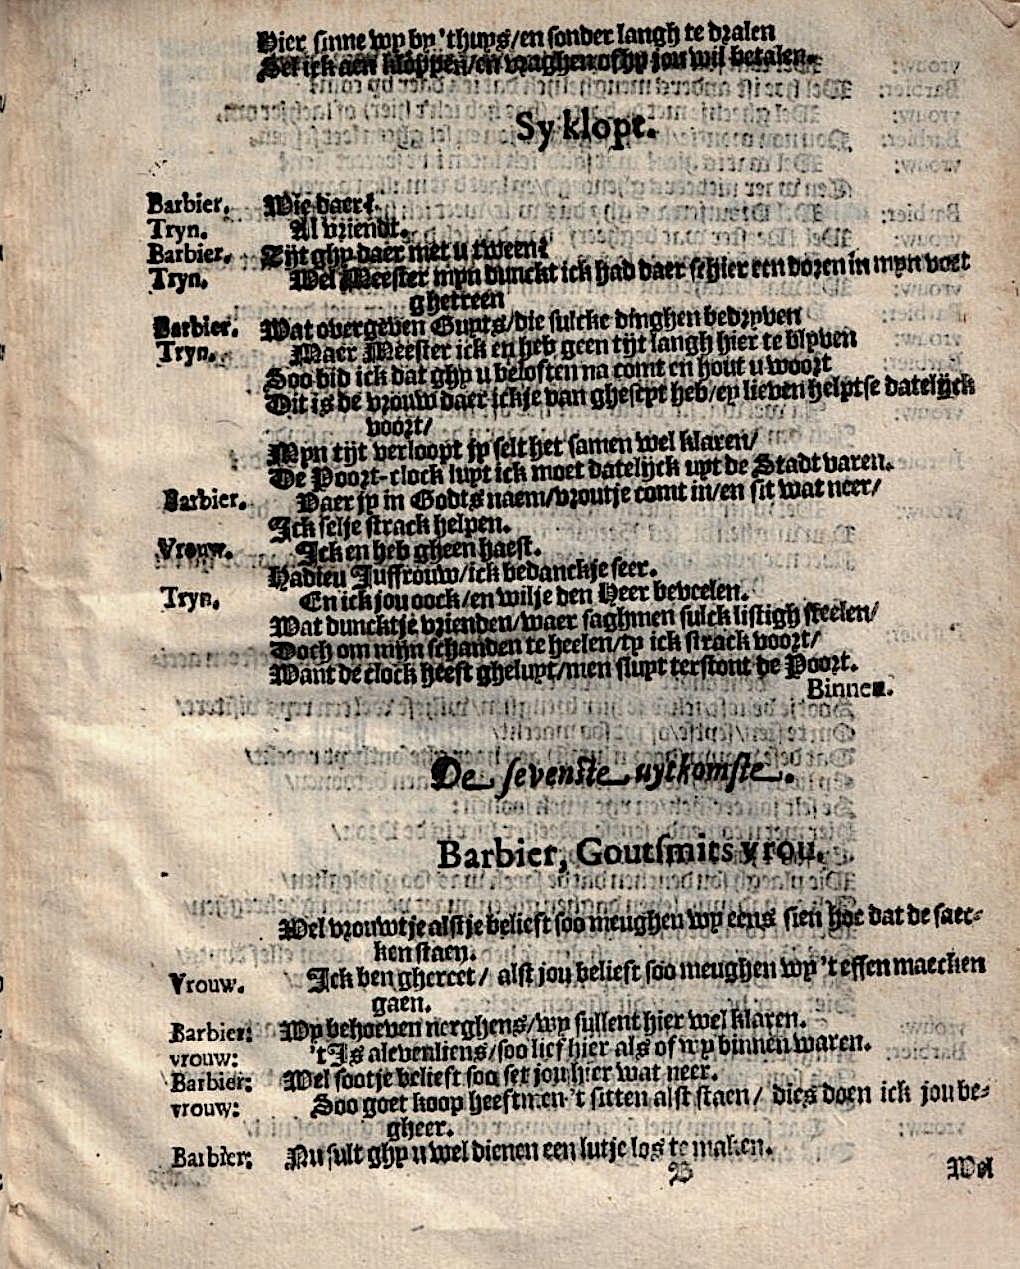 Hier sinne wy by 'thuys/en sonder langh te dralen
Sel ick aen kloppen/en vraghen of hy jou wil betalen.
Sy klopt.
Barbier. Wie daer?
Tryn. Al vriendt.
Barbier. Zijt ghy daer met u tween?
Tryn. Wel Meester myn dunckt ick had daer schier een doren in myn voet
ghetreen
Barbier. Wat overgeven Guyts/die sulcke dinghen bedryven
Tryn. Maer Meester ick en heb geen tijt langh hier te blyven
Soo bid ick dat ghy u beloften na comt en hout u woort
Dit is de vrouw daer ickje van gheseyt heb/ey lieven helptse datelijck
voort/
Myn tijt verloopt jy selt het samen wel klaren/
De Poort-clock luyt ick moet datelijck uyt de Stadt varen.
Barbier. Vaer jy in Godts naem/vroutje comt in/en sit wat neer/
Ick selje strack helpen.
Vrouw. Ick en heb gheen haest.
Hadieu Juffrouw/ick bedanckje seer.
Tryn. En ick jou oock/en wilje den Heer beveelen.
Wat duncktje vrienden/waer saghmen sulck listigh steelen/
Doch om mijn schanden te heelen/ty ick strack voort/
Want de clock heeft gheluyt/men sluyt terstont de Poort.
Binnen.
De sevenste uytkomste.
Barbier, Goutsmits vrou.
Wel vrouwtje alstje belieft soo meughen wy eens sien hoe dat de saec-
ken staen.
Vrouw. Ick ben ghereet / alst jou belieft soo meughen wy 't effen maecken
gaen.
Barbier: Wy behoeven nerghens/wy sullent hier wel klaren.
vrouw: 't Is alevenliens/soo lief hier als of wy binnen waren.
Barbier: Wel sootje belieft soo set jou hier wat neer.
vrouw: Soo goet koop heeftmen 't sitten alst staen / dies doen ick jou be-
gheer.
Barbier: Nu sult ghy u wel dienen een lutje los te maken.
B Wel